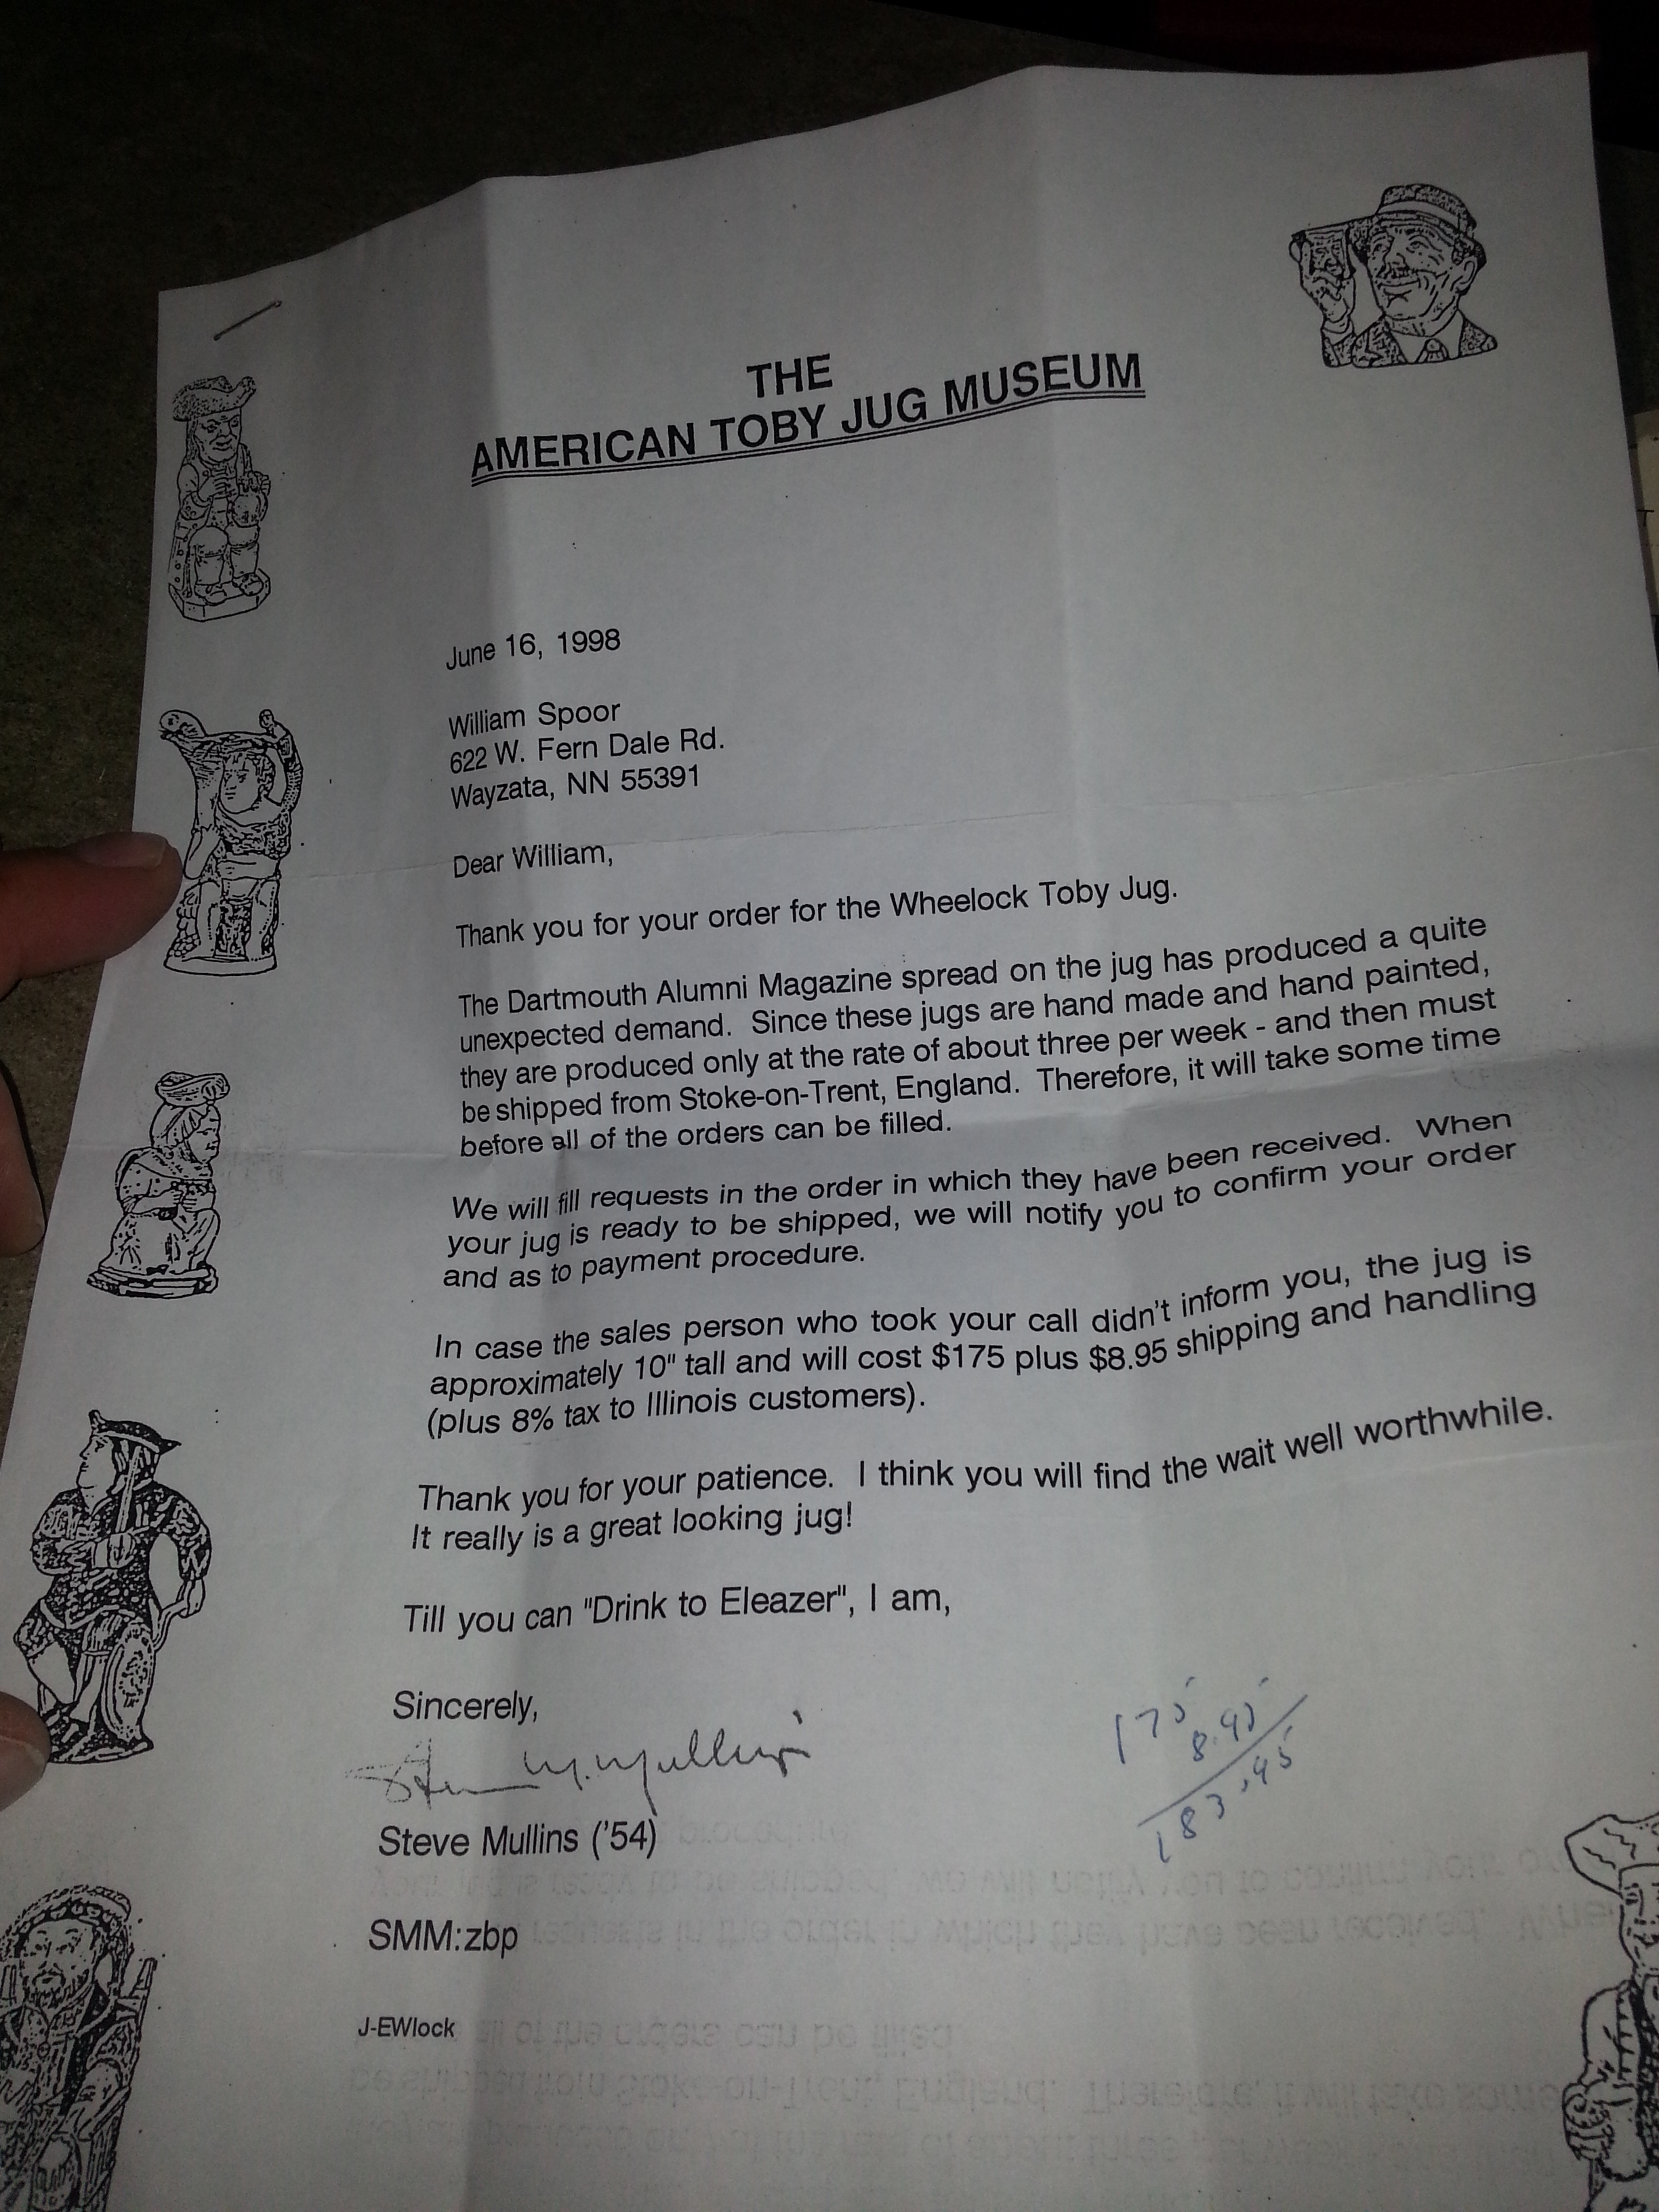 THE
AMERICAN TOBY JUG MUSEUM
June 16, 1998
William Spoor
622 W. Fern Dale Rd.
Wayzata, NN 55391
Dear William,
Thank you for your order for the Wheelock Toby Jug.
The Dartmouth Alumni Magazine spread on the jug has produced a quite
unexpected demand. Since these jugs are hand made and hand painted,
they are produced only at the rate of about three per week - and then must
be shipped from Stoke-on-Trent, England. Therefore, it will take some time
before all of the orders can be filled.
We will fill requests in the order in which they have been received. When
your jug is ready to be shipped, we will notify you to confirm your order
and as to payment procedure.
In case the sales person who took your call didn't inform you, the jug is
approximately 10" tall and will cost $175 plus $8.95 shipping and handling
(plus 8% tax to Illinois customers).
Thank you for your patience. I think you will find the wait well worthwhile.
It really is a great looking jug!
Till you can "Drink to Eleazer", I am,
Sincerely,
Steve M. Mullins
175
8.95
183.95
Steve Mullins ('54)
SMM:zbp
J-EWlock